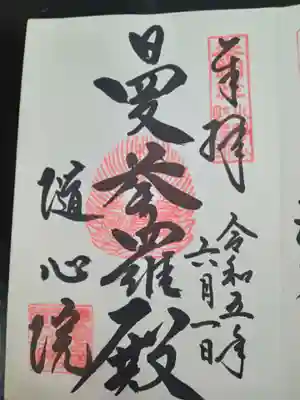 奉拝
令和五年
六月一日
曼荼羅殿
隨心院